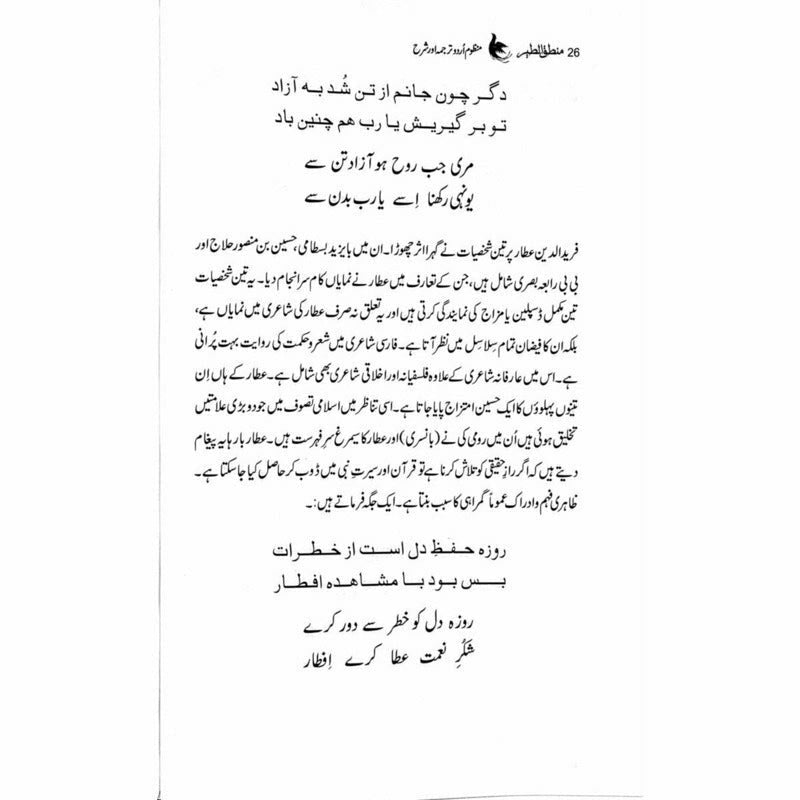 26 منطق الطیر منظوم اُردو ترجمہ اور شرح
دگر چون جانم از تن شُد بہ آزاد
تو بر گیریش یا رب هم چنین باد
مری جب روح ہو آزاد تن سے
یونہی رکھنا اِسے یارب بدن سے
فرید الدین عطار پر تین شخصیات نے گہرا اثر چھوڑا۔ ان میں بایزید بسطامی، حسین بن منصور حلاج اور
بی بی رابعہ بصری شامل ہیں، جن کے تعارف میں عطار نے نمایاں کام سرانجام دیا۔ یہ تین شخصیات
تین مکمل ڈسپلین یا مزاج کی نمایندگی کرتی ہیں اور یہ تعلق نہ صرف عطار کی شاعری میں نمایاں ہے،
بلکہ ان کا فیضان تمام سِلاسِل میں نظر آتا ہے۔ فارسی شاعری میں شعر و حکمت کی روایت بہت پُرانی
ہے۔ اس میں عارفانہ شاعری کے علاوہ فلسفیانہ اور اخلاقی شاعری بھی شامل ہے۔ عطار کے ہاں اِن
تینوں پہلوؤں کا ایک حسین امتزاج پایا جاتا ہے۔ اسی تناظر میں اسلامی تصوف میں جو دو بڑی علامتیں
تخلیق ہوئی ہیں اُن میں رومی کی نے (بانسری) اور عطار کا سیمرغ سرِ فہرست ہیں۔ عطار بارہا یہ پیغام
دیتے ہیں کہ اگر رازِ حقیقی کو تلاش کرنا ہے تو قرآن اور سیرتِ نبی میں ڈوب کر حاصل کیا جا سکتا ہے۔
ظاہری فہم و ادراک عموماً گمراہی کا سبب بنتا ہے۔ ایک جگہ فرماتے ہیں:۔
روزه حفظِ دل است از خطرات
بس بود با مشاهده افطار
روزہ دل کو خطر سے دور کرے
شکرِ نعمت عطا کرے اِفطار